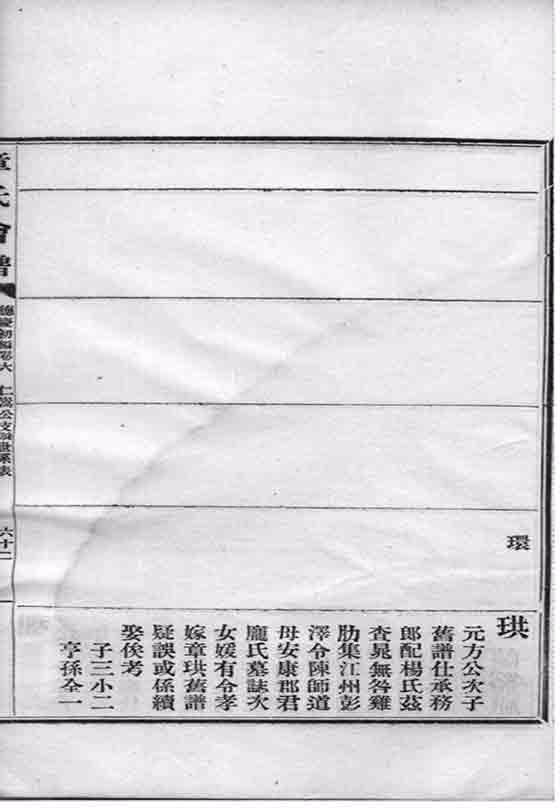 環
珙
元方公次子
舊譜仕承務
郎配楊氏茲
查晁無咎雞
肋集江州彭
澤令陳師道
母安康郡君
龐氏墓誌次
女媛有令孝
嫁章珙舊譜
疑誤或係續
娶俟考
子三小二
亨孫全一
章氏會譜
德慶初編卷六
公支 世系表
六十二